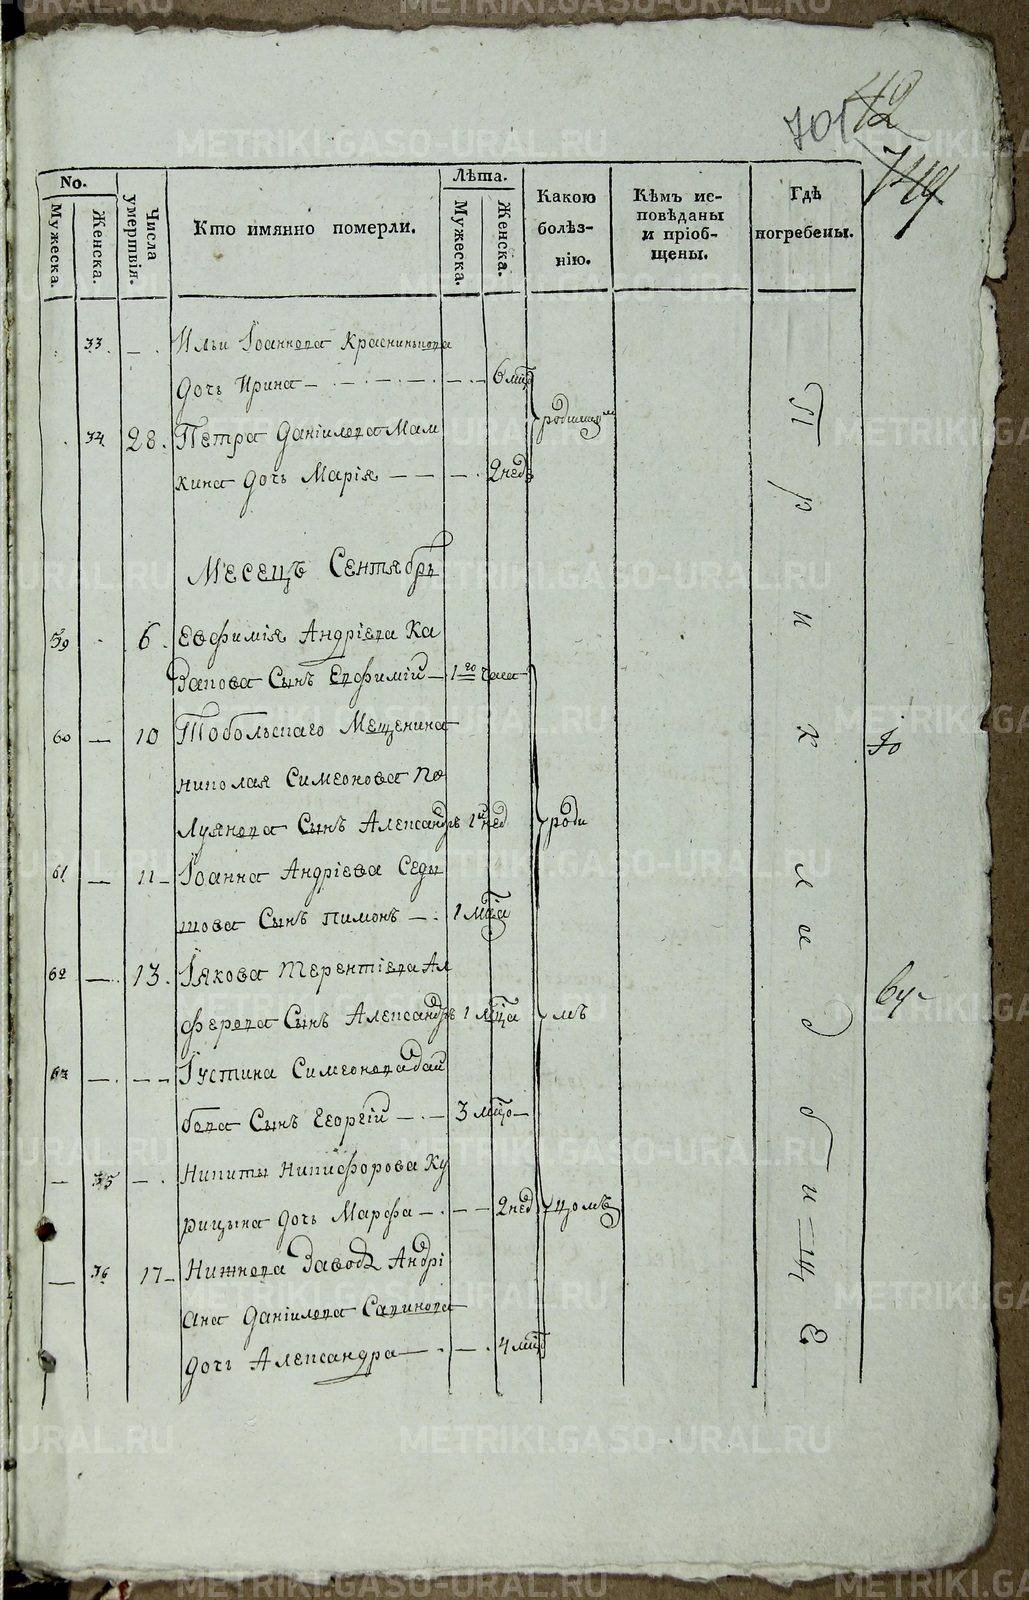 701 42
749
No. Лѣта.
Мужеска. Женска. Числа умертвія. Кто имянно померли. Мужеска. Женска. Какою болѣз-нію. Кѣмъ ис-повѣданы и пріоб-щены. Гдѣ погребены.
33 — Ильи Іоаннова Красильникова
дочь Ирина — 6 мцъ
родимцомъ
34 28. Петра Даніилова Мам
кина дочь Марія — — 2 нед
Месецъ Сентябрь
59 6. Евфимія Андріева Ка
запова Сынъ Евфимій — 1го часа
60 — 10 Тобольскаго Мещенина
Николая Симеонова По
луянова Сынъ Александръ 1 нед
роди
61 — 11 — Іоанна Андріева Седы
шова Сынъ Пимонъ — 1 мца
62 — 13. Іякова Терентіева Ал
ферова Сынъ Александръ 1 мца
мъ
63 — — Іустина Симеонова
бова Сынъ Георгій — 3 мцо
— 35 — Никиты Никифорова Ку
рицына дочь Марфа — 2 нед
цомъ
— 36 17 — Нижнева Завода Андрі
ана Даніилова Савинова
дочь Александра — 4 мцъ
При кладбище